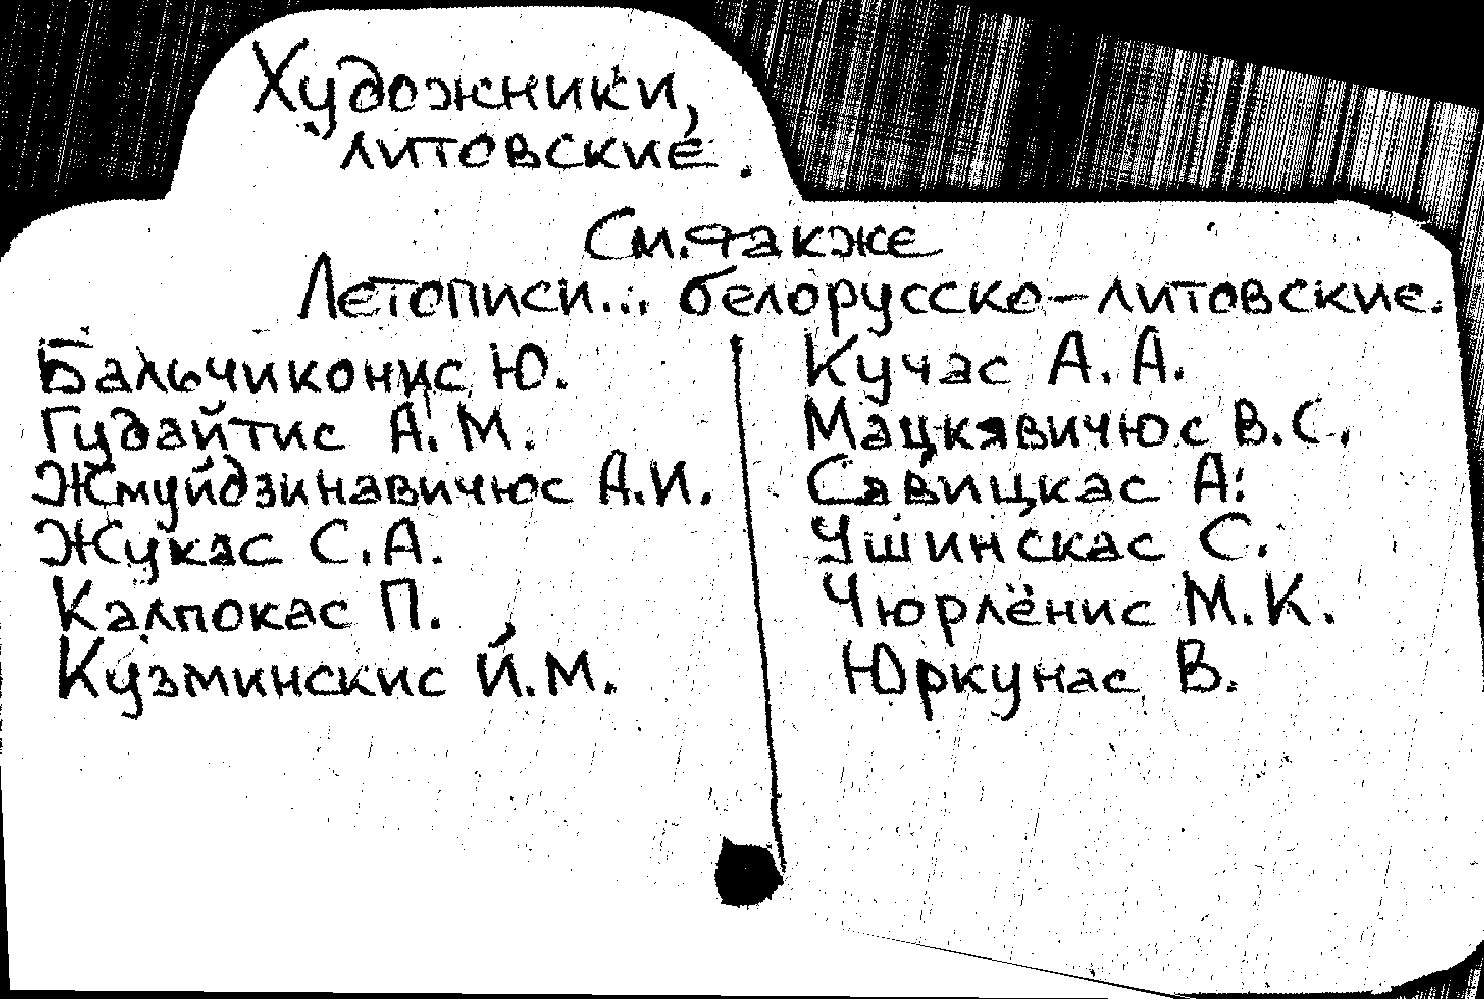 Художники,
литовские.
См. также
Летописи... белорусско-литовские.
Бальчиконис Ю.
Гудайтис А.М.
Жмуйдзинавичюс А.И.
Жукас С.А.
Калпокас П.
Кузминскис Й.М.
Кучас А.А.
Мацкявичюс В.С.
Савицкас А.
Ушинскас С.
Чюрлёнис М.К.
Юркунас В.